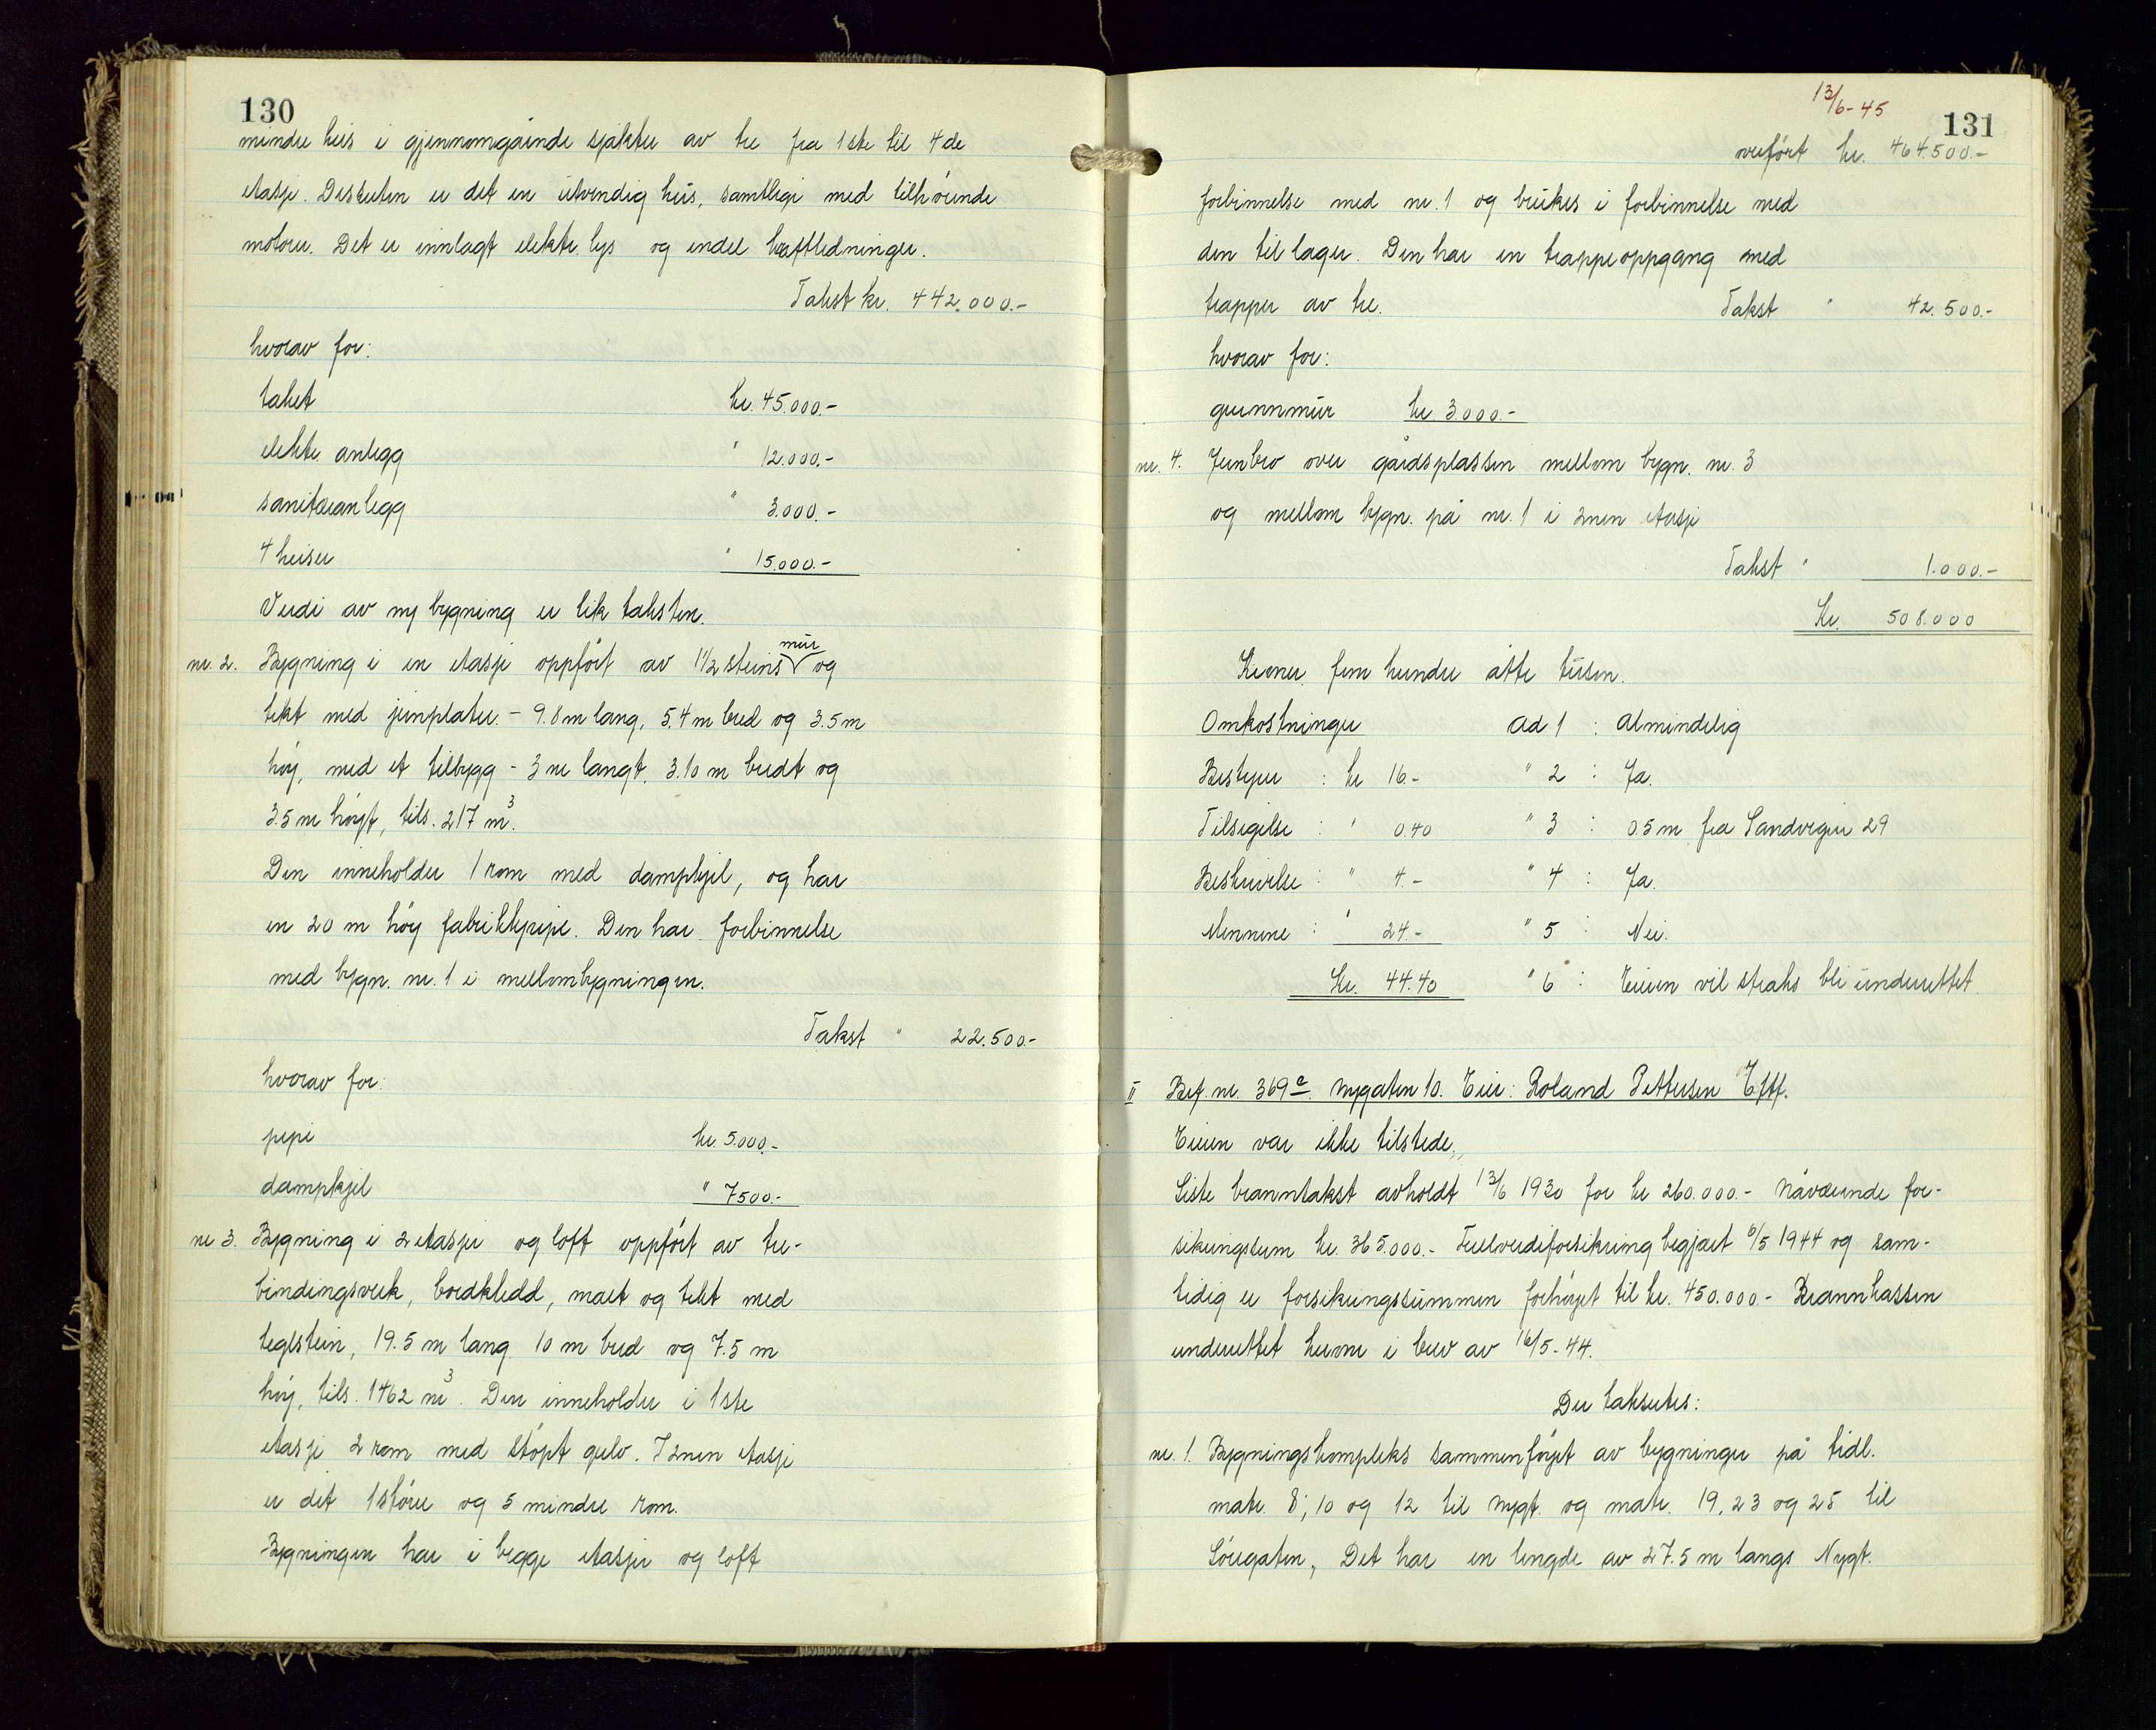 130
mindre heis i gjennomgående sjakter av tre fra 1ste til 4de
etasje. Dessuten er det en utvendig heis, samtlige med tilhörende
motorer. Det er innlagt elektr. lys og endel kraftledninger.
Takst kr. 442.000.-
hvorav for:
taket kr. 45.000.-
elektr. anlegg " 12.000.-
sanitæranlegg " 3.000.-
4 heiser " 15.000.-
Verdi av ny bygning er lik taksten.
nr. 2. Bygning i en etasje oppfört av 1 1/2 steins mur og
tekt med jernplater. - 9.8 m lang, 5.4 m bred og 3.5 m
höy, med et tilbygg - 3 m langt, 3.10 m bredt og
3.5 m höyt, tils. 217 m³.
Den inneholder 1 rom med dampkjel, og har
en 20 m höy fabrikkpipe. Den har forbinnelse
med bygn. nr. 1 i mellombygningen.
Takst " 22.500.-
hvorav for:
pipe kr. 5.000.-
dampkjel " 7500.-
nr 3. Bygning i 2 etasjer og loft oppfört av tre-
bindingsverk, bordkledd, malt og tekt med
teglstein, 19.5 m lang 10 m bred og 7.5 m
höy, tils. 1462 m³. Den inneholder i 1ste
etasje 2 rom med stöpt gulv. I 2nen etasje
er det 1 större og 5 mindre rom.
Bygningen har i begge etasjer og loft
13/6-45
131
overfört kr. 464.500.-
forbinnelse med nr. 1 og brukes i forbinnelse med
den til lager. Den har en trappeoppgang med
trapper av tre. Takst " 42.500.-
hvorav for:
grunnmur kr. 3.000.-
nr. 4. Jernbro over gårdsplassen mellom bygn. nr. 3
og mellom bygn. på nr. 1 i 2nen etasje
Takst " 1.000.-
Kr. 508.000
Kroner fem hundre åtte tusen.
Omkostninger Ad 1 : Almindelig
Bestyrer : kr 16.- " 2 : Ja.
Tilsigelse : " 0.40 " 3 : 0.5 m fra Sandvigen 29
Beskrivelse : " 4.- " 4 : Ja.
Mennene : " 24.- " 5 : Nei.
Kr. 44.40 " 6 : Eieren vil straks bli underrettet.
II Bef. nr. 369 e. Nygaten 10. Eier: Roland Pettersen Eftf.
Eieren var ikke tilstede.
Siste branntakst avholdt 13/6 1930 for kr 260.000.- Nåværende for-
sikringssum kr. 365.000.- Fullverdiforsikring begjært 6/5 1944 og sam-
tidig er forsikringssummen forhöyet til kr. 450.000.- Brannkassen
underrettet herom i brev av 16/5-44.
Der takseres:
nr. 1. Bygningskompleks sammenföyet av bygninger på tidl.
matr. 8, 10 og 12 til Nygt. og matr. 19, 23 og 25 til
Söregaten, Det har en lengde av 27.5 m langs Nygt.